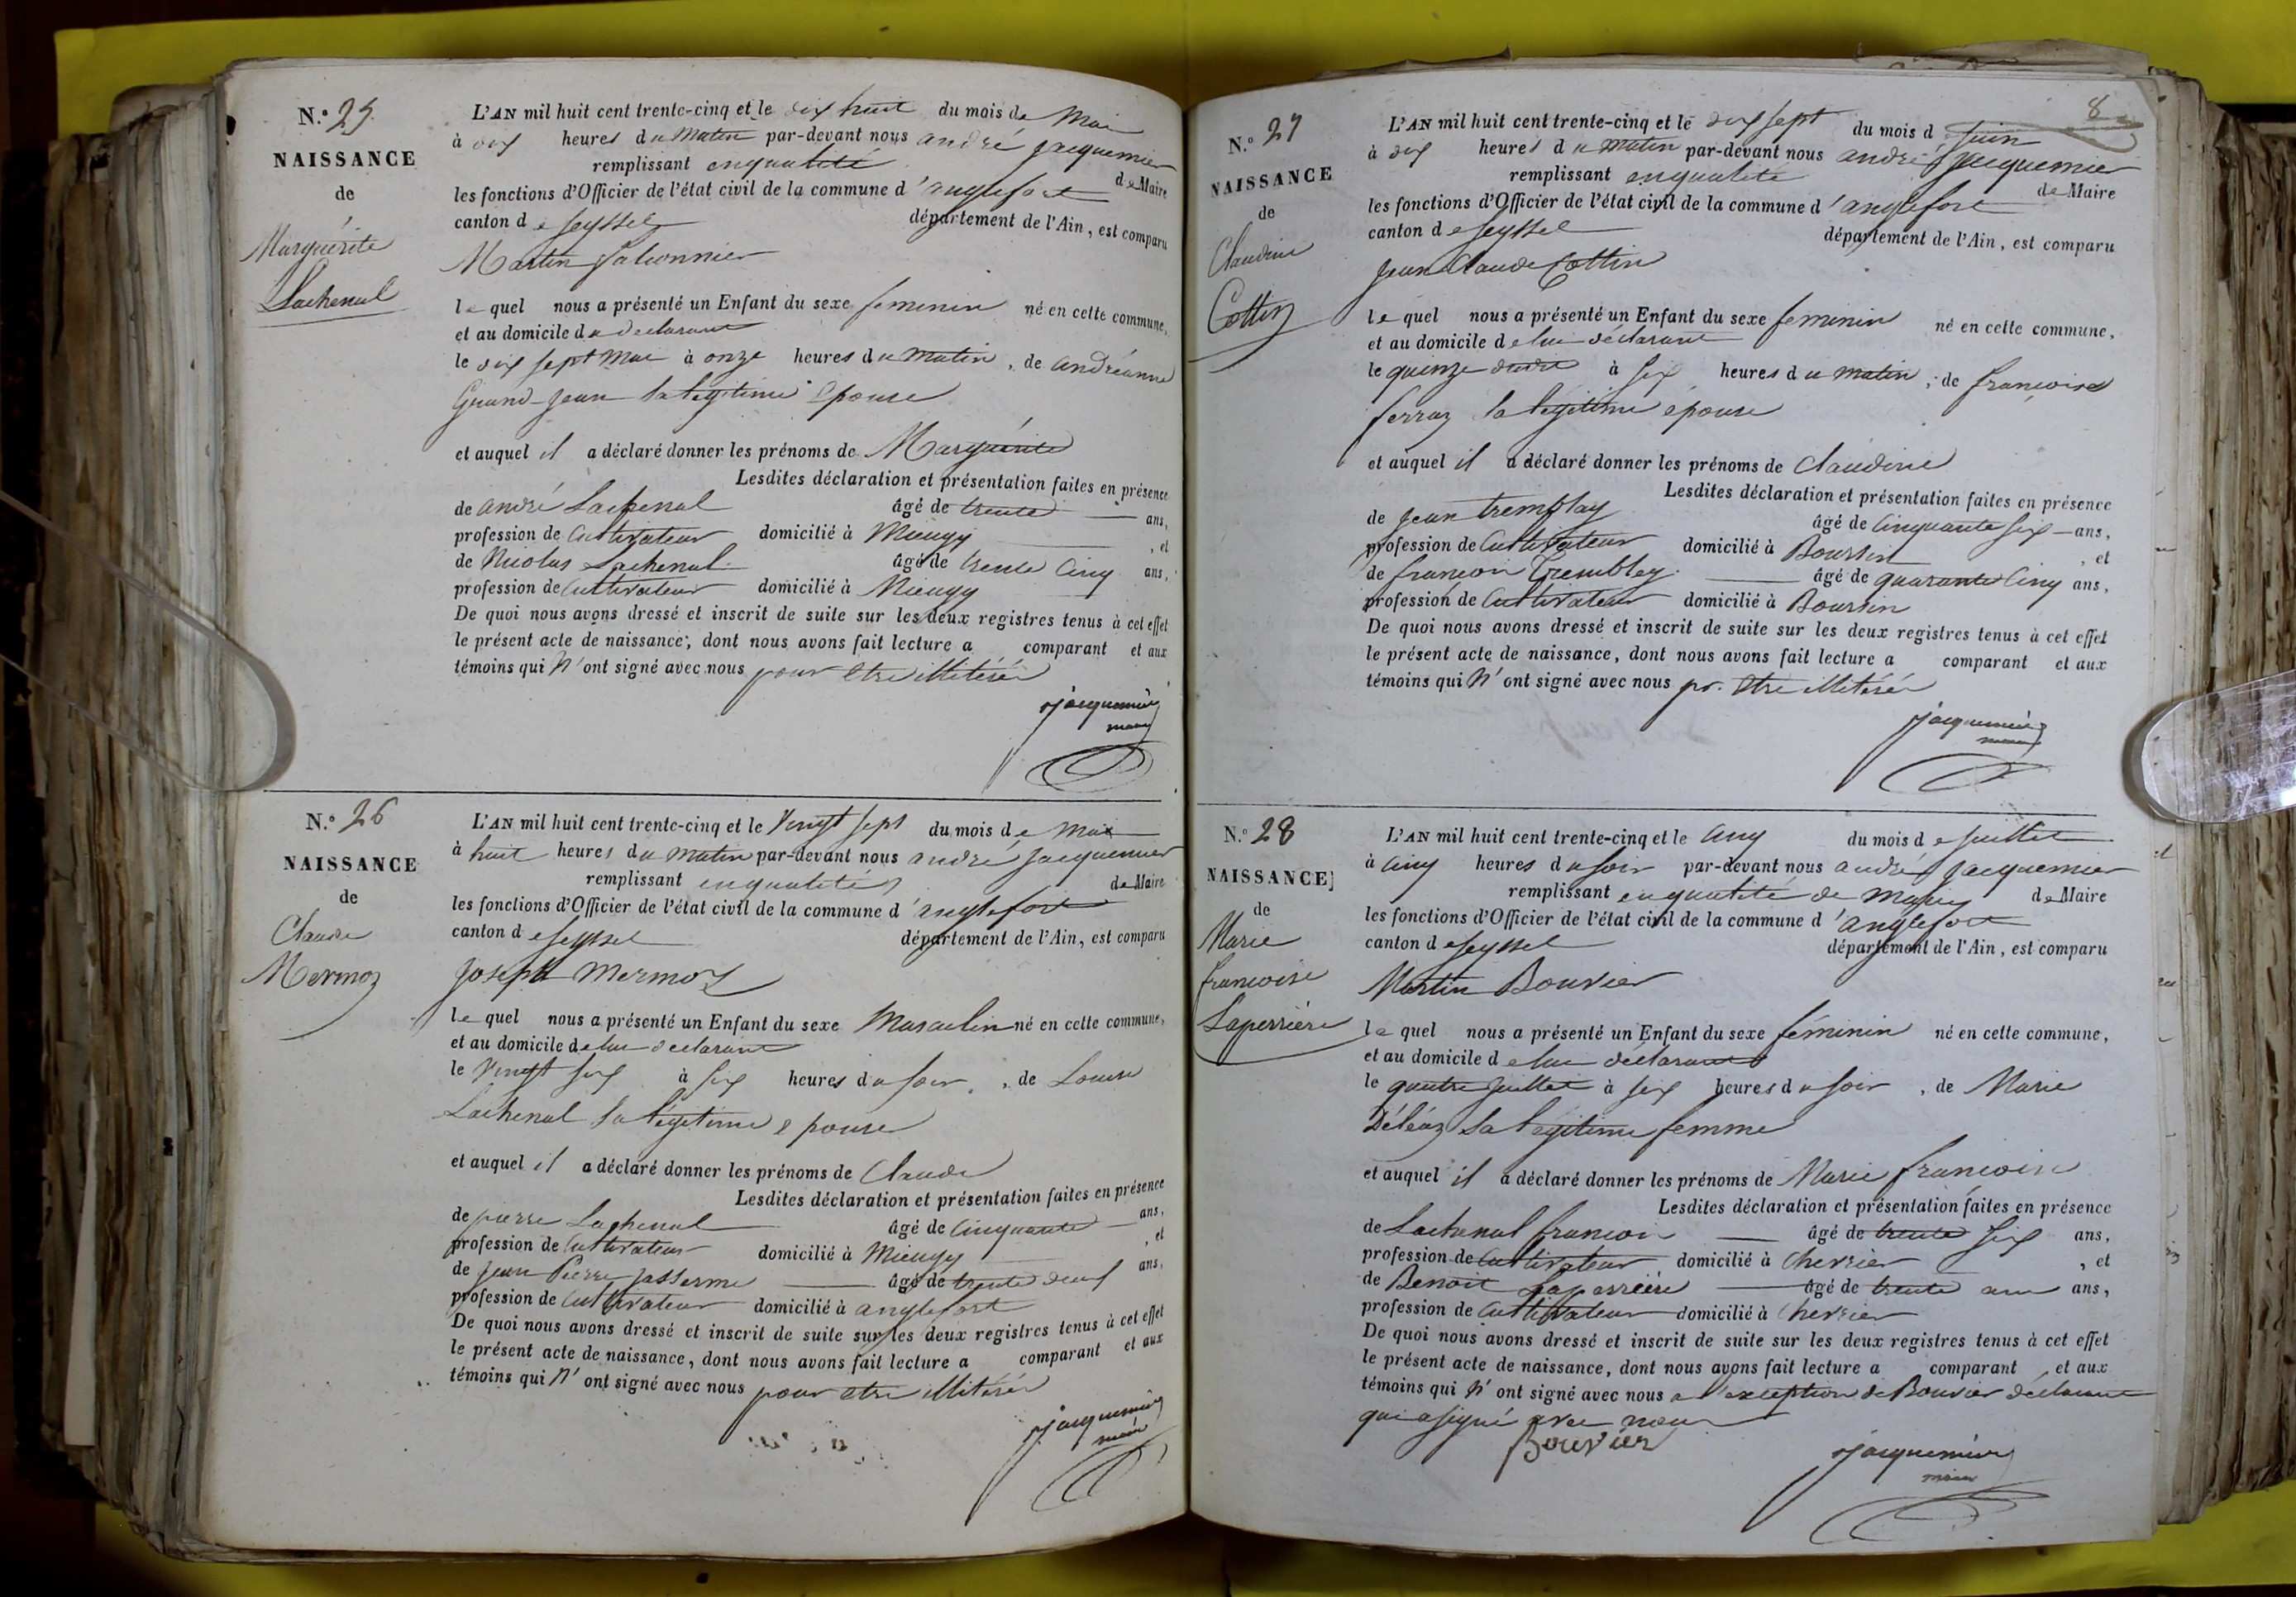 N.° 25
NAISSANCE
de
Marguérite
Lachenal
L'AN mil huit cent trente-cinq et le dix huit du mois de Mai
à dix heures du Matin par-devant nous andré jacquemier
remplissant enqualité de Maire
les fonctions d'Officier de l'état civil de la commune d'anglefort
canton de seyssel département de l'Ain, est comparu
Martin
le quel nous a présenté un Enfant du sexe feminin né en cette commune,
et au domicile du declarant
le dix sept mai à onze heures du matin, de andréanne
Grand-jean sa legitime Epouse
et auquel il a déclaré donner les prénoms de Marguérite
Lesdites déclaration et présentation faites en présence
de andré Lachenal âgé de trente ans,
profession de Cultivateur domicilié à Mieugy , et
de Nicolas Lachenal âgé de trente Cinq ans,
profession de Cultivateur domicilié à Mieugy
De quoi nous avons dressé et inscrit de suite sur les deux registres tenus à cet effet
le présent acte de naissance, dont nous avons fait lecture a comparant et aux
témoins qui n'ont signé avec nous pour etre illitérés
jacquemier
maire
N.° 26
NAISSANCE
de
Claude
Mermoz
L'AN mil huit cent trente-cinq et le Vingt sept du mois de Mai
à huit heures du matin par-devant nous andré jacquemier
remplissant enqualité de Maire
les fonctions d'Officier de l'état civil de la commune d'anglefort
canton de seyssel département de l'Ain, est comparu
joseph Mermoz
le quel nous a présenté un Enfant du sexe Masculin né en cette commune,
et au domicile de lui declarant
le Vingt six à six heures du soir, de Louise
Lachenal sa légitime epouse
et auquel il a déclaré donner les prénoms de Claude
Lesdites déclaration et présentation faites en présence
de pierre Lachenal âgé de Cinquante ans,
profession de Cultivateur domicilié à Mieugy , et
de jean Pierre jasserme âgé de trente neuf ans,
profession de Cultivateur domicilié à anglefort
De quoi nous avons dressé et inscrit de suite sur les deux registres tenus à cet effet
le présent acte de naissance, dont nous avons fait lecture a comparant et aux
témoins qui n'ont signé avec nous pour etre illitérés
jacquemier
maire
8
N.° 27
NAISSANCE
de
Claudine
Cottin
L'AN mil huit cent trente-cinq et le dix sept du mois d juin
à dix heures du matin par-devant nous andré jacquemier
remplissant enqualité de Maire
les fonctions d'Officier de l'état civil de la commune d'anglefort
canton de seyssel département de l'Ain, est comparu
jean Claude Cottin
le quel nous a présenté un Enfant du sexe feminin né en cette commune,
et au domicile de lui déclarant
le quinze dudit à six heures du matin, de françoise
ferraz sa legitime épouse
et auquel il a déclaré donner les prénoms de Claudine
Lesdites déclaration et présentation faites en présence
de jean tremblay âgé de Cinquante six ans,
profession de Cultivateur domicilié à Boursin , et
de francoi Trembley âgé de quarante Cinq ans,
profession de Cultivateur domicilié à Boursin
De quoi nous avons dressé et inscrit de suite sur les deux registres tenus à cet effet
le présent acte de naissance, dont nous avons fait lecture a comparant et aux
témoins qui n'ont signé avec nous pr. etre illitérés
jacquemier
maire
N.° 28
NAISSANCE
de
Marie
francoise
Laperrière
L'AN mil huit cent trente-cinq et le cinq du mois de juillet
à cinq heures du soir par-devant nous andré jacquemier
remplissant enqualité de maire de Maire
les fonctions d'Officier de l'état civil de la commune d'anglefort
canton de seyssel département de l'Ain, est comparu
Martin Bouvier
le quel nous a présenté un Enfant du sexe féminin né en cette commune,
et au domicile de lui déclarant
le quatre juillet à six heures du soir, de Marie
Déléaz sa legitime femme
et auquel il a déclaré donner les prénoms de Marie francoise
Lesdites déclaration et présentation faites en présence
de Lachenal francois âgé de trente six ans,
profession de Cultivateur domicilié à Chevrier , et
de Benoit Laperrière âgé de trente ans,
profession de Cultivateur domicilié à Chevrier
De quoi nous avons dressé et inscrit de suite sur les deux registres tenus à cet effet
le présent acte de naissance, dont nous avons fait lecture a comparant et aux
témoins qui n'ont signé avec nous a l'exception de Bouvier déclarant
qui a signé avec nous
Bouvier
jacquemier
maire